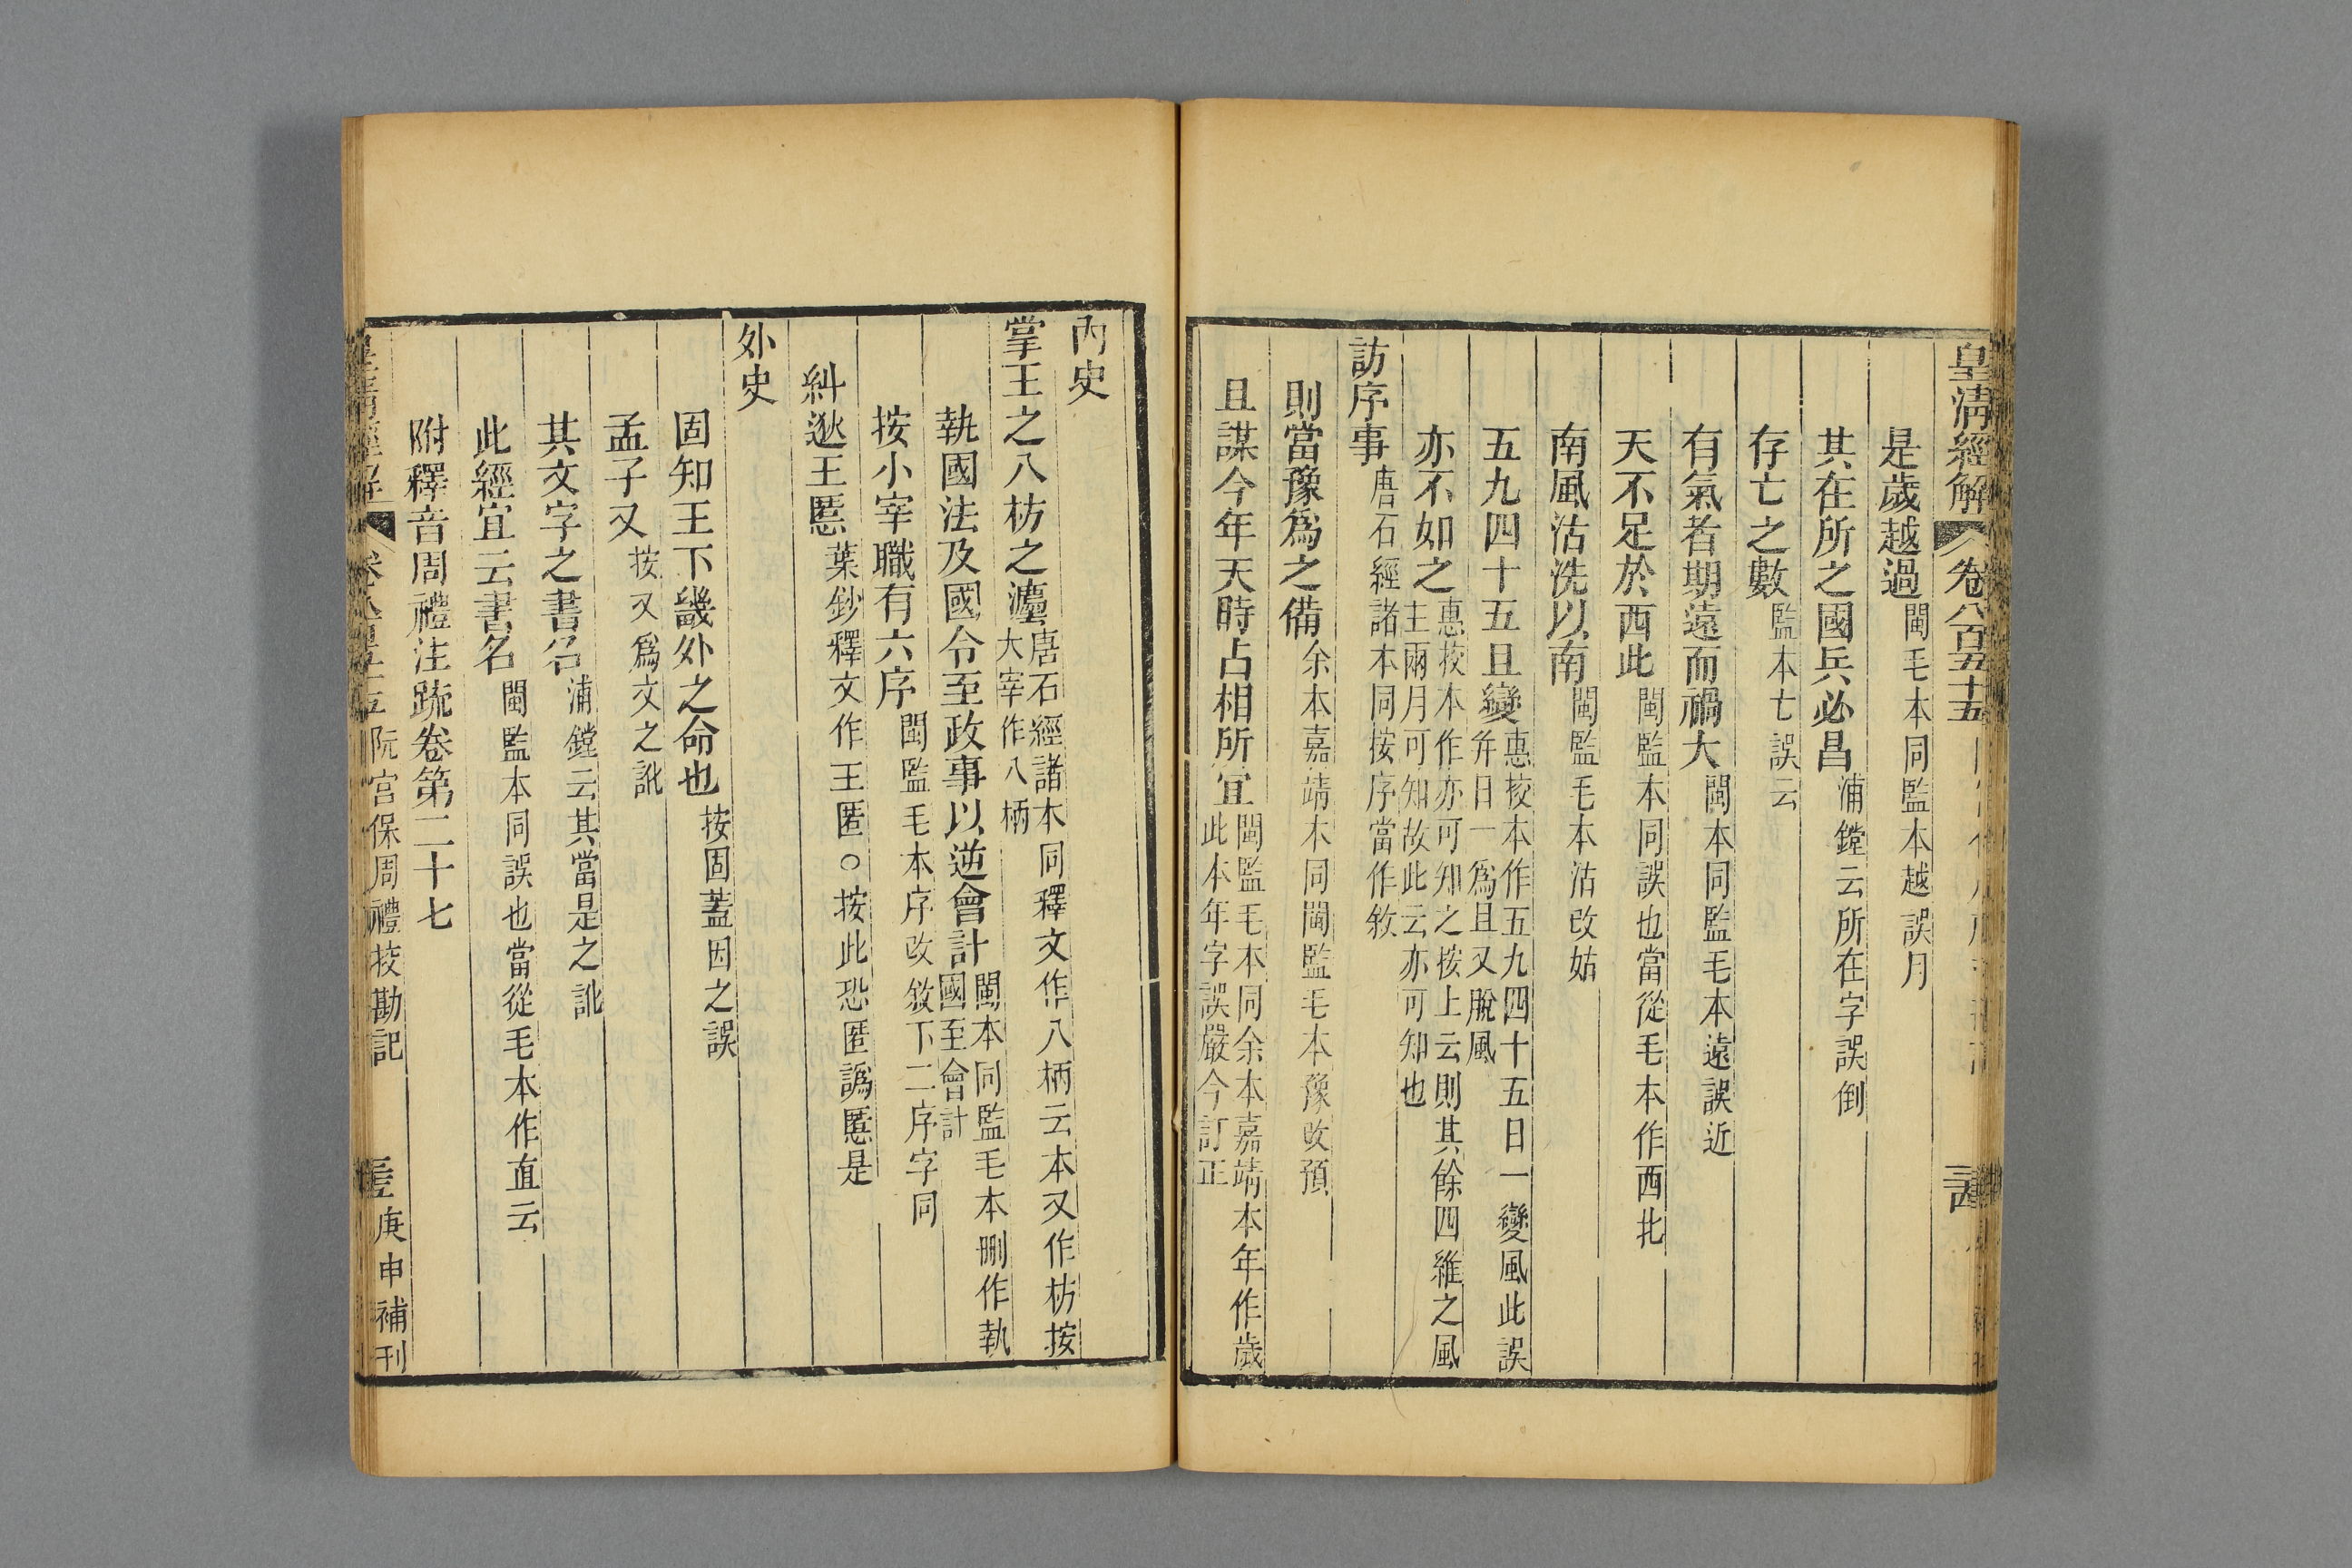 皇清經解 卷八百五十五
是歲越過閩毛本同監本越誤月
其在所之國兵必昌浦鏜云所在字誤倒
存亡之數監本七誤云
有氣者期遠而禍大閩本同監毛本遠誤近
天不足於西此閩監本同誤也當從毛本作西北
南風沽洗以南閩監毛本沽改姑
五九四十五且變惠挍本作五九四十五日一變風此誤
幷日一爲且又脫風
亦不如之惠挍本作亦可知之按上云則其餘四維之風
主兩月可知故此云亦可知也
訪序事唐石經諸本同按序當作敘
則當豫爲之備余本嘉靖本同閩監毛本豫改預
且謀今年天時占相所宜閩監毛本同余本嘉靖本年作歲
此本年字誤嚴今訂正
內史
掌王之八枋之灋唐石經諸本同釋文作八柄云本又作枋按
大宰作八柄
執國法及國令至政事以逆會計閩本同監毛本刪作執
國至會計
按小宰職有六序閩監毛本序改敘下二序字同
糾逖王慝葉鈔釋文作王匿○按此恐匿譌慝是
外史
固知王下畿外之命也按固蓋因之誤
孟子又按又爲文之訛
其文字之書名浦鏜云其當是之訛
此經宜云書名閩監本同誤也當從毛本作直云
附釋音周禮注疏卷第二十七
阮宮保周禮挍勘記
庚申補刊